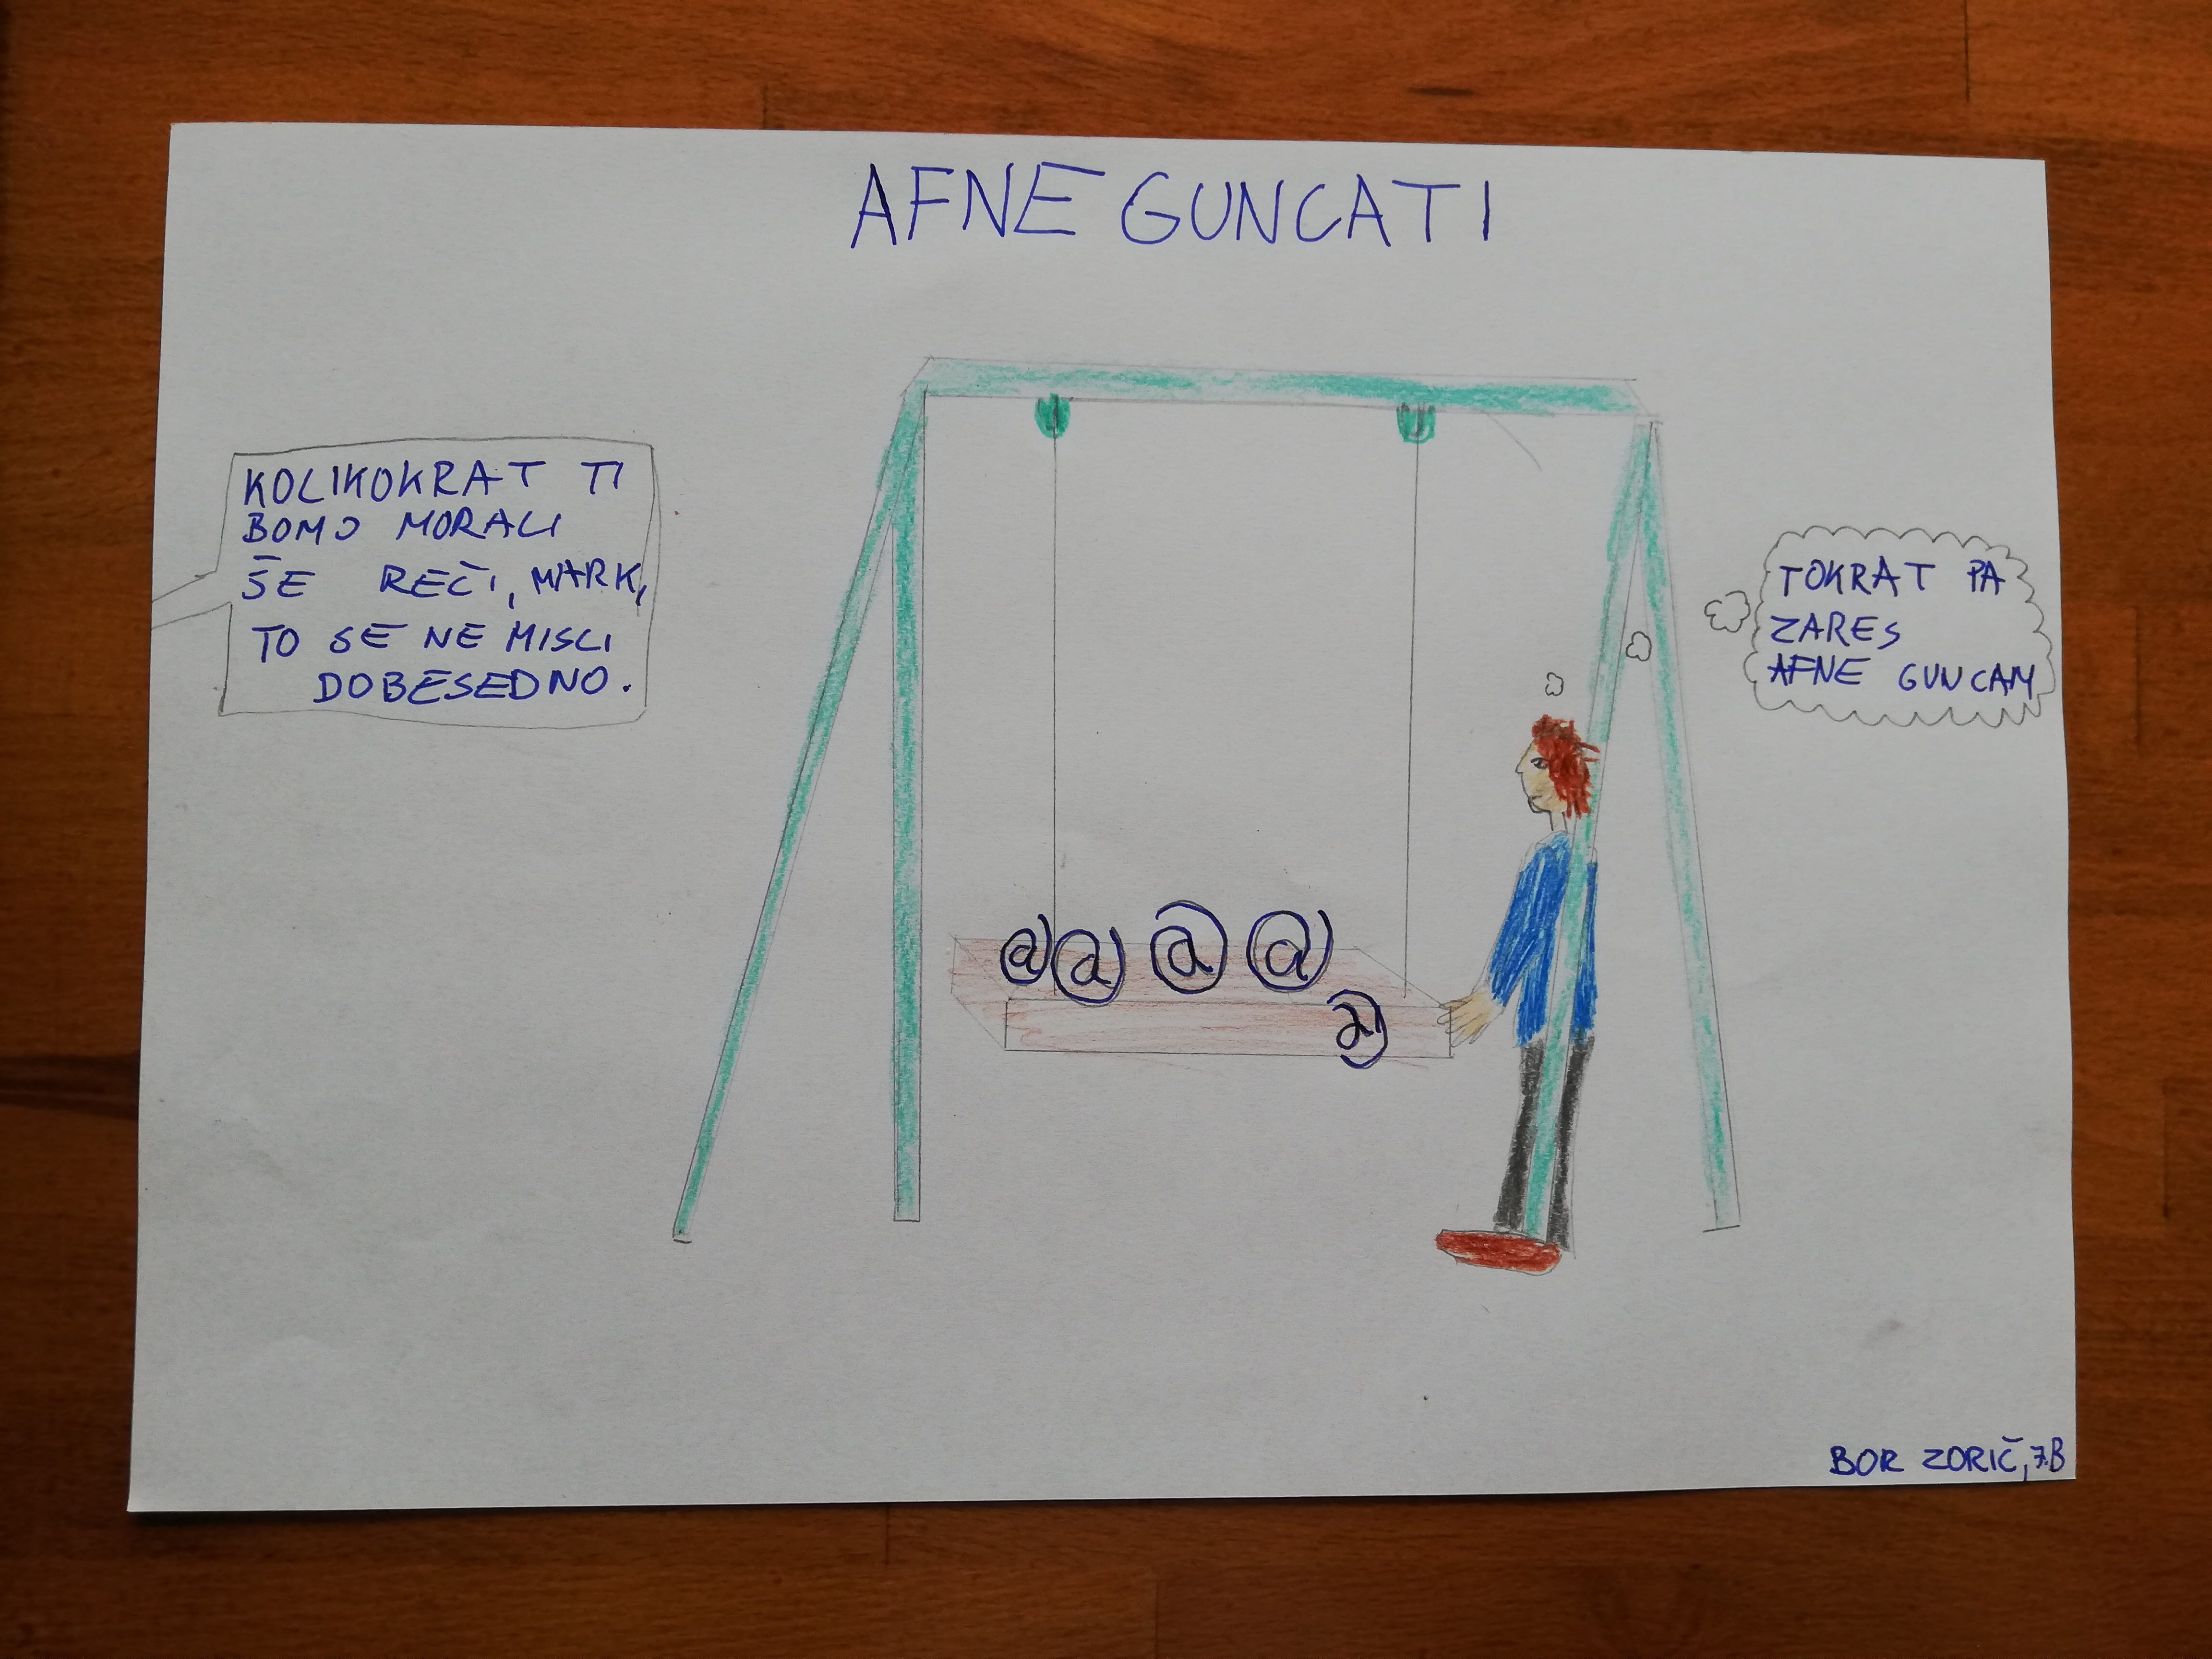 AFNE GUNCATI
KOLIKOKRAT TI
BOMO MORALI
ŠE REČI, MARK,
TO SE NE MISLI
DOBESEDNO.
TOKRAT PA
ZARES
AFNE GUNCAM
@ @ @ @
@
BOR ZORIČ, 7.B